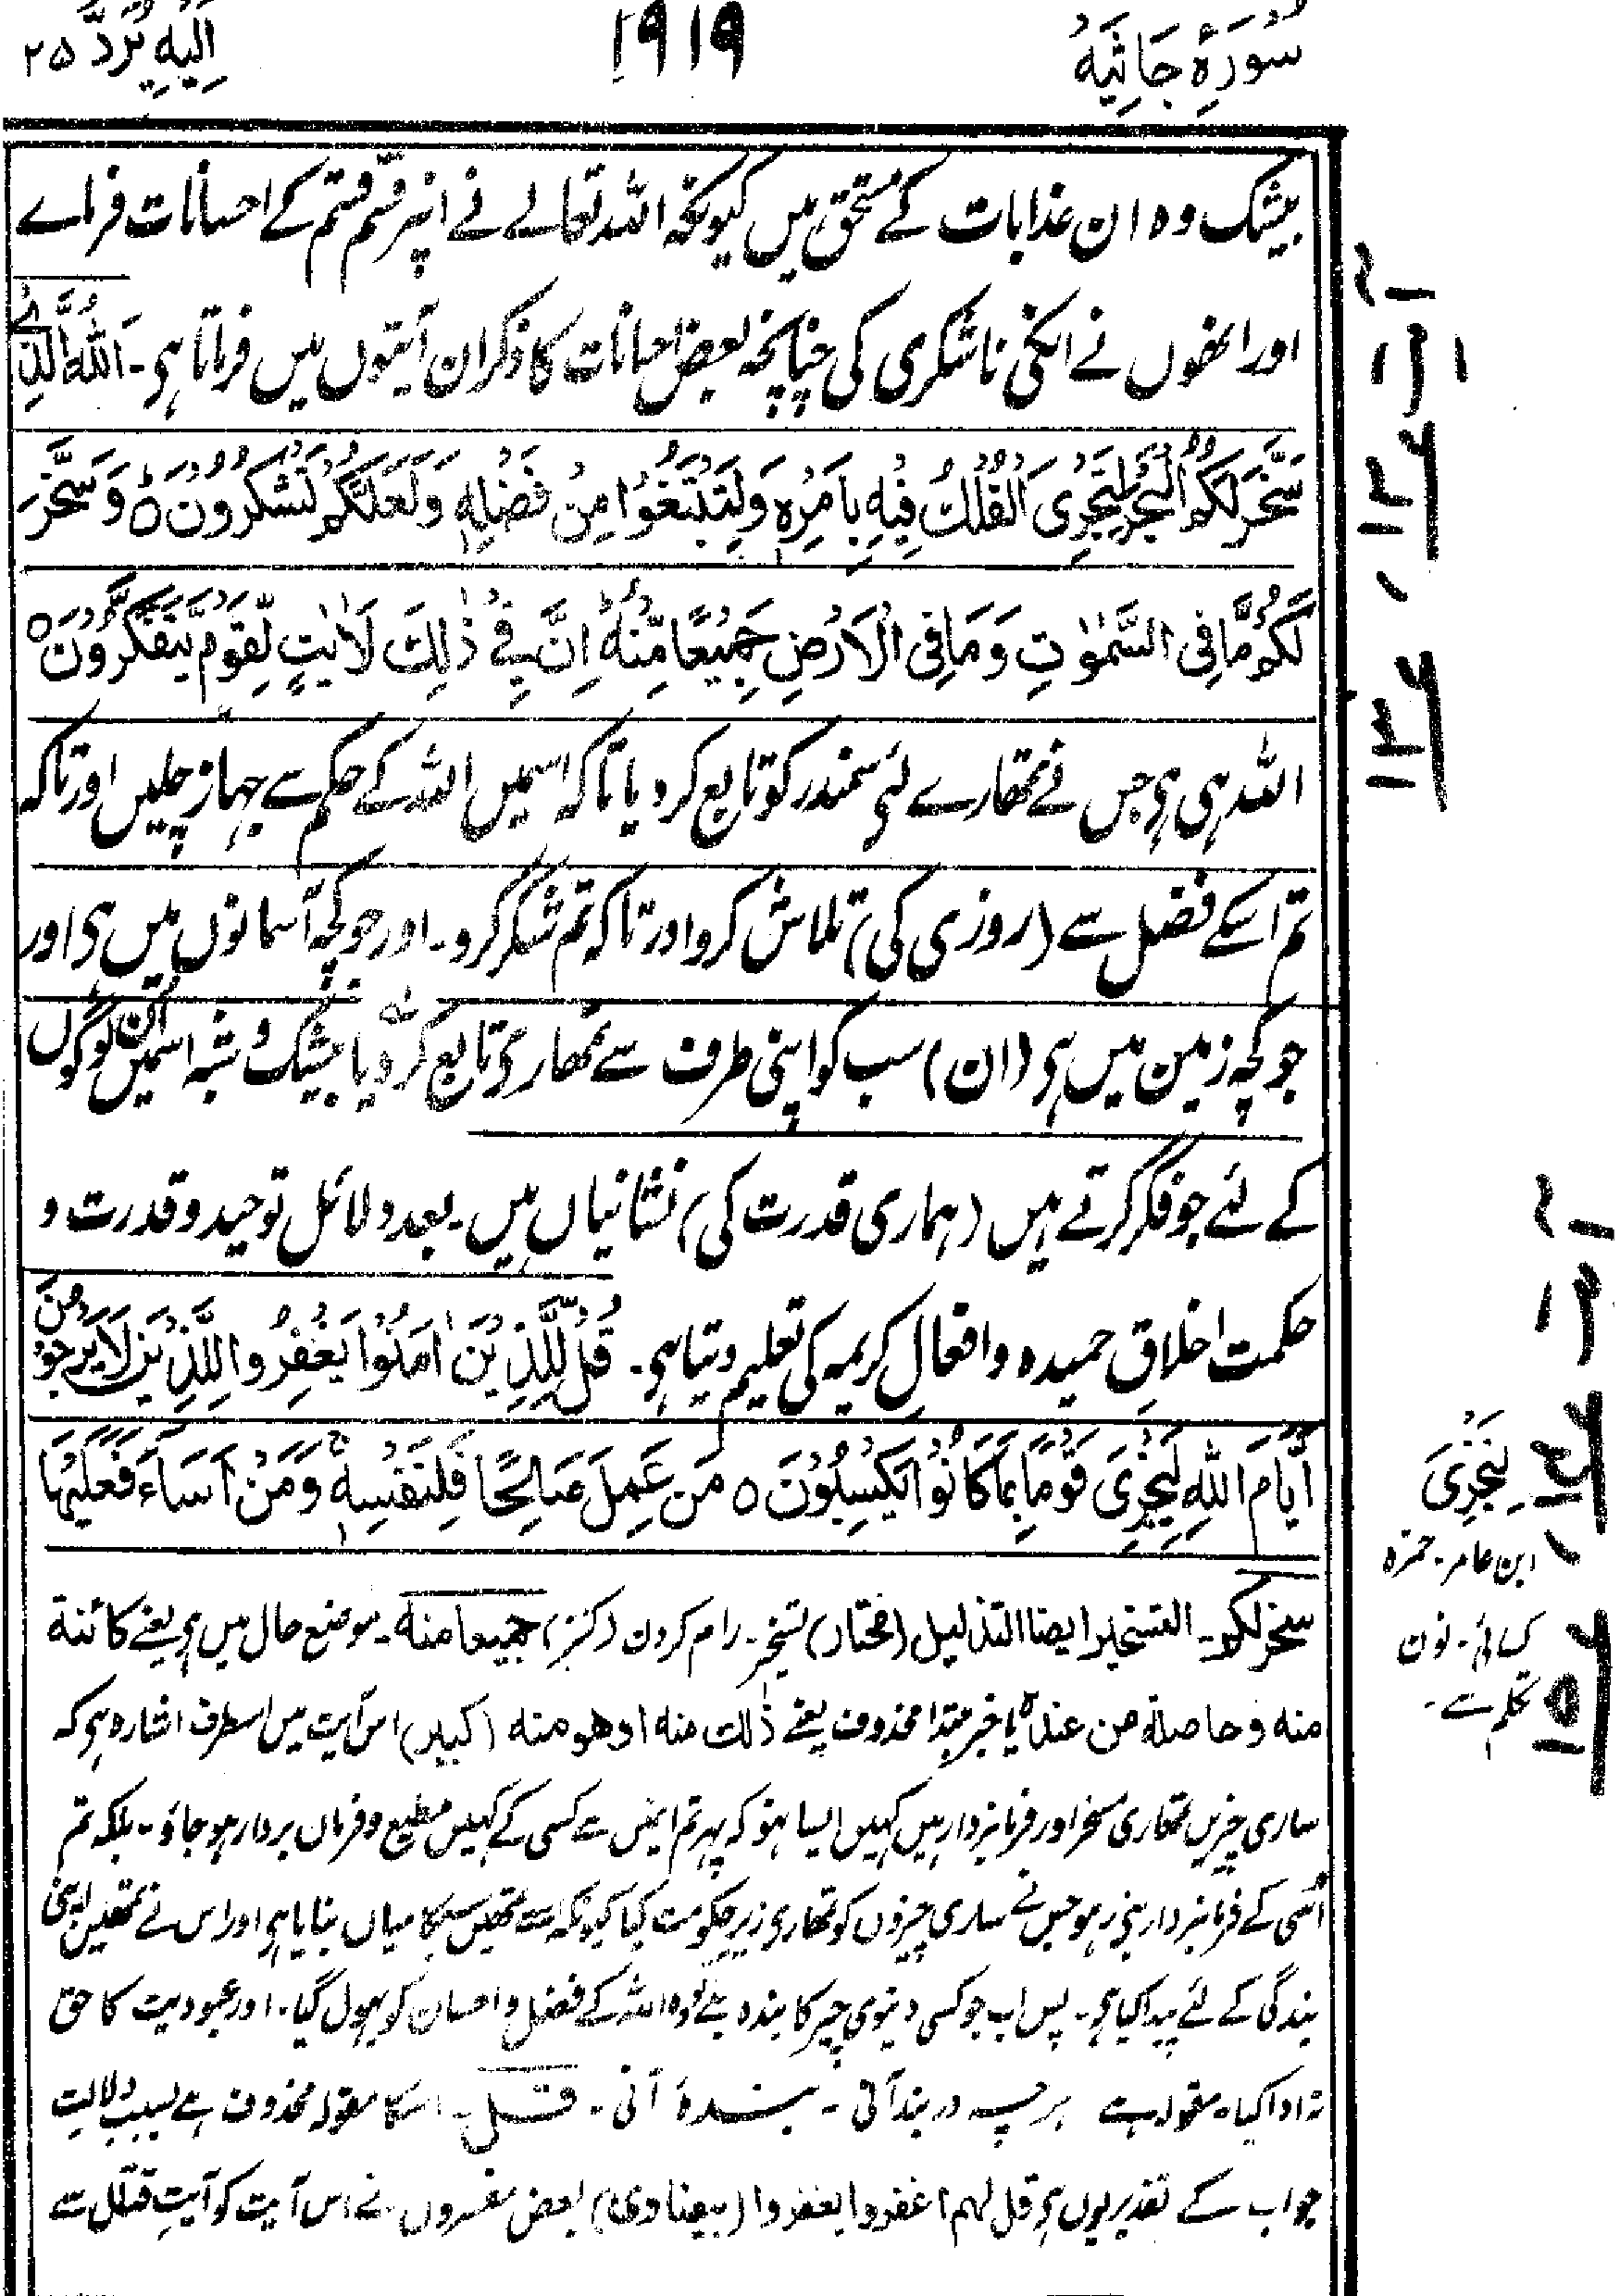 سُوْرَۃُ جَاثِیَہ
۱۹۱۹
اِلَیْہِ یُرَدُّ ۲۵
بیشک وہ ان عذابات کے مستحق ہیں کیونکہ اللہ تعالے نے انپر قسم قسم کے احسانات فرماے
اور انھوں نے انکی ناشکری کی چنانچہ بعض احسانات کا ذکر ان آیتوں میں فرماتا ہی۔ اَللّٰہُ الَّذِیْ
سَخَّرَ لَکُمُ الْبَحْرَ لِتَجْرِیَ الْفُلْکُ فِیْہِ بِاَمْرِہٖ وَلِتَبْتَغُوْا مِنْ فَضْلِہٖ وَلَعَلَّکُمْ تَشْکُرُوْنَ ۵ وَسَخَّرَ
لَکُمْ مَّا فِی السَّمٰوٰتِ وَمَا فِی الْاَرْضِ جَمِیْعًا مِّنْہُ ؕ اِنَّ فِیْ ذٰلِکَ لَاٰیٰتٍ لِّقَوْمٍ یَّتَفَکَّرُوْنَ ۵
اللہ ہی ہی جس نے تمھارے لئی سمندر کو تابع کر دیا تاکہ اسمیں اللہ کے حکم سے جہاز چلیں اور تاکہ
تم اسکے فضل سے (روزی کی) تلاش کرو اور تاکہ تم شکر کرو۔ اور جو کچھ آسمانوں میں ہی اور
جو کچھ زمین میں ہی (ان) سب کو اپنی طرف سے تمھاری تابع کر دیا بیشک و شبہ اسمیں اُن لوگوں
کے لئے جو فکر کرتے ہیں (ہماری قدرت کی) نشانیاں ہیں۔ بعد دلائل توحید و قدرت و
حکمت اخلاقِ حمیدہ و افعالِ کریمہ کی تعلیم دیتا ہی۔ قُلْ لِّلَّذِیْنَ اٰمَنُوْا یَغْفِرُوْا لِلَّذِیْنَ لَا یَرْجُوْنَ
اَیَّامَ اللّٰہِ لِیَجْزِیَ قَوْمًا بِمَا کَانُوْا یَکْسِبُوْنَ ۵ مَنْ عَمِلَ صَالِحًا فَلِنَفْسِہٖ ۚ وَمَنْ اَسَآءَ فَعَلَیْہَا
لِنَجْزِیَ
ابن عامر۔ حمزہ
کسائی۔ نون
تکلم سے۔
سخر لکم۔ التسخیر ایضا التذلیل (مختار) تسخیر۔ رام کردن (کنز) جمیعا منہ۔ موضع حال میں ہی یعنے کائنۃ
منہ و حاصلۃ من عندہ یا خبر مبتدا محذوف یعنے ذٰلک منہ او ھو منہ (کبیر) اس آیت میں اسطرف اشارہ ہی کہ
ساری چیزیں تمھاری مسخر اور فرمانبردار ہیں کہیں ایسا ہنو کہ پھر تم انمیں سے کسی کے کہیں مطیع و فرمان بردار ہو جاؤ۔ بلکہ تم
اُسی کے فرمانبردار بنی رہو جس نے ساری چیزوں کو تمھاری زیر حکومت کیا کیونکہ اسنے تمھیں سبکا میاں بنایا ہی اور اس نے تمھیں اپنی
بندگی کے لئے پیدا کیا ہی۔ پس اب جو کسی دینوی چیز کا بندہ بنے تو وہ اللہ کے فضل و احسان کو بھول گیا۔ اور عبودیت کا حق
نہ ادا کیا۔ مقولہ ہے ہر چہ در بند آنی۔ بندۂ آنی۔ قل۔ اسکا مقولہ محذوف ہے بسبب دلالت
جواب کے تقدیر یوں ہی قل لہم اغفروا یغفروا (بیضاوی) بعض مفسروں نے اس آیت کو آیتِ قتال سے